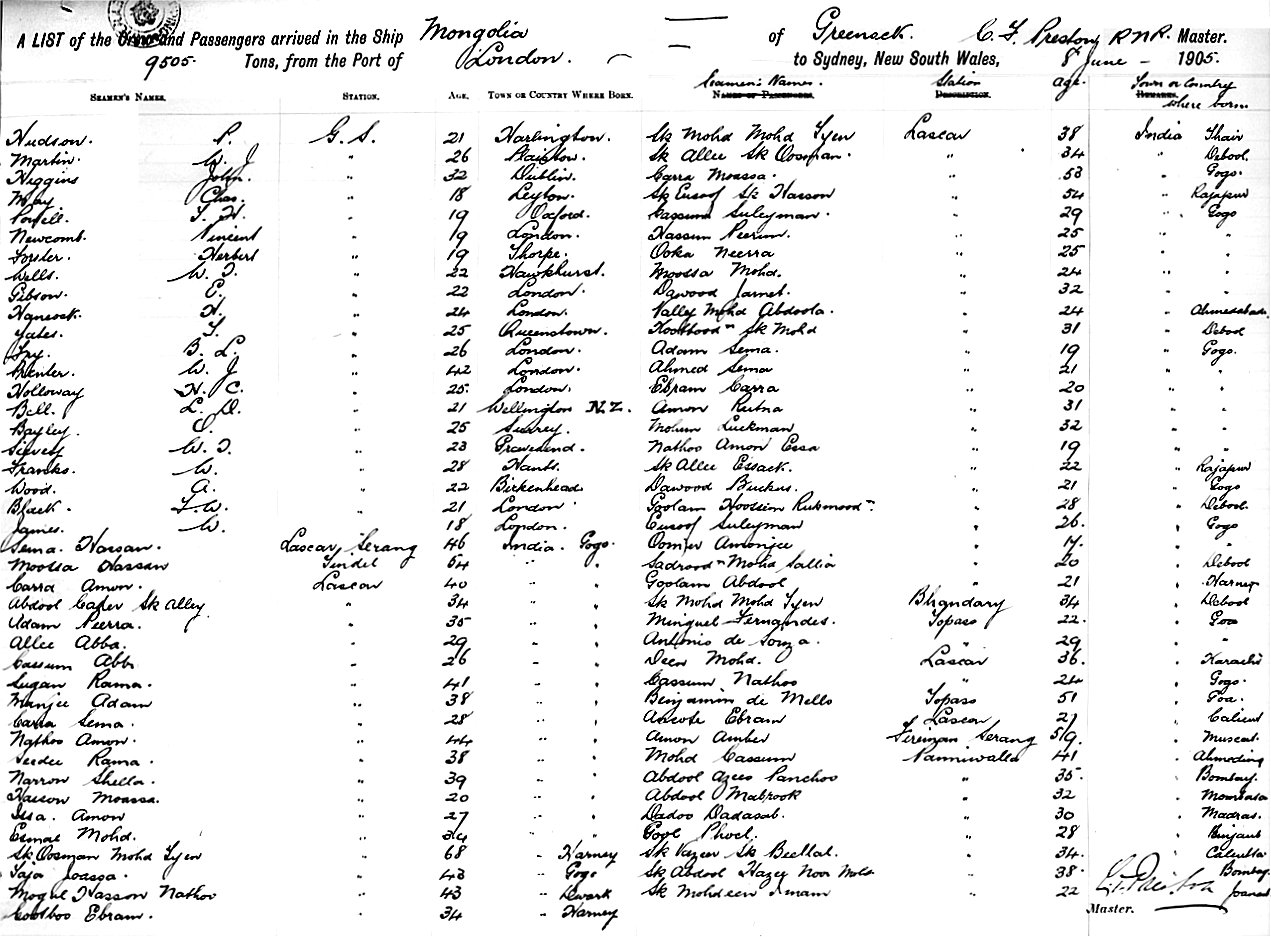 A LIST of the Crew and Passengers arrived in the Ship Mongolia of Greenock. C. F. Preston, R.N.R. Master.
9505 Tons, from the Port of London. to Sydney, New South Wales, 8 June 1905.
SEAMEN'S NAMES. STATION. AGE. TOWN OR COUNTRY WHERE BORN. Seamen's Names. NAMES OF PASSENGERS. Station DESCRIPTION. age. Town or Country where born REMARKS.
Hudson. P. G. S. 21 Harlington. Sk Mohd Mohd Syen Lascar 38 India Thair
Martin. W. J. " 26 Sk Allee Sk Oosman. " 34 " Debool.
Higgins John. " 32 Dublin. Carra Moossa. " 53 " Gogo.
May Chas. " 18 Leyton. Sk Eusoof Sk Hasson " 54 " Rajapur
Powell. T. H. " 19 Oxford. Cassum Suleyman. " 29 " Gogo
Newcomb. Vincent " 19 London. Hassum Peerun. " 25 " "
Forster Herbert " 19 Thorpe. Ooka Neerra " 25 " "
Wells. W. T. " 22 Hawkhurst. Moossa Mohd. " 24 " "
Gibson. E. " 22 London. Dawood Jamet. " 32 " "
Hancock. H. " 24 London. Valley Mohd Abdoola. " 24 " Ahmedabad.
Yates. T. " 25 Queenstown. Sk Mohd " 31 " Debool
B. L. " 26 London. Adam Sema. " 19 " Gogo.
W. J " 42 London. Ahmed Sema " 21 " "
Holloway H. C. " 25 London. Ebram Carra " 20 " "
Bell. L. D. " 21 Wellington N.Z. Amon Rutna " 31 " "
Bayley. " 25 Surrey. Mohun Luckman " 32 " "
W. T. " 23 Gravesend. Nathoo Amon Essa " 19 " "
Franks. W. " 28 Hants. Sk Allee Essack. " 22 " Rajapur
Wood. A. " 22 Birkenhead Dawood Buckus. " 21 " Gogo
Black. F. W. " 21 London Goolam Hoossein " 28 " Debool.
James. W. " 18 London. Eusoof Suleyman " 26. " Gogo
Sema Hassan. Lascar Serang 46 India. Gogo. Oomer Amonjee " 17. " "
Moossa Hassan Tindel 54 " " Mohd Sallia " 20 " Debool
Carra Amon. Lascar 40 " " Goolam Abdool " 21 " Harney
Abdool Cader Sk Alley " 34 " " Sk Mohd Mohd Syen Bhandary 34 " Debool
Adam Peerra. " 35 " " Minguel Fernandes. Topass 22. " Goa
Allee Abba. " 29 " " Antonio de Souza. " 29 " "
Cassum Abba " 26 " " Deen Mohd. Lascar 36. " Karachi
Sugan Rama. " 41 " " Cassum Nathoo " 24 " Gogo.
Manjee Adam " 38 " " Benjamin de Mello Topass 51 " Goa.
Carra Sema. " 28 " " Ebram Lascar 21 " Calicut
Nathoo Amon. " 44 " " Amon Amber Fireman Serang 59. " Muscat.
Rama. " 38 " " Mohd Cassum Panniwalla 41 "
Narron Shella. " 39 " " Abdool Azees Panchoo " 35. " Bombay.
Moossa. " 20 " " Abdool Mabrook " 32 " Mombasa
Issa Amon " 27 " " Dadoo Dadasab. " 30 " Madras.
Esmal Mohd. " 34 " " Gool " 28 " Punjaub
Sk Oosman Mohd Syen " 68 " Harney Sk Vazeer Sk Beellal. " 34. " Calcutta
" 43 " Gogo Sk Abdool Hazey Noor Mohd. " 38. " Bombay.
Mogul Hasson Nathoo " 43 " Dwark Sk Mohdeen Imam " 22
Ebram. " 34 " Harney
C. F. Preston
Master.